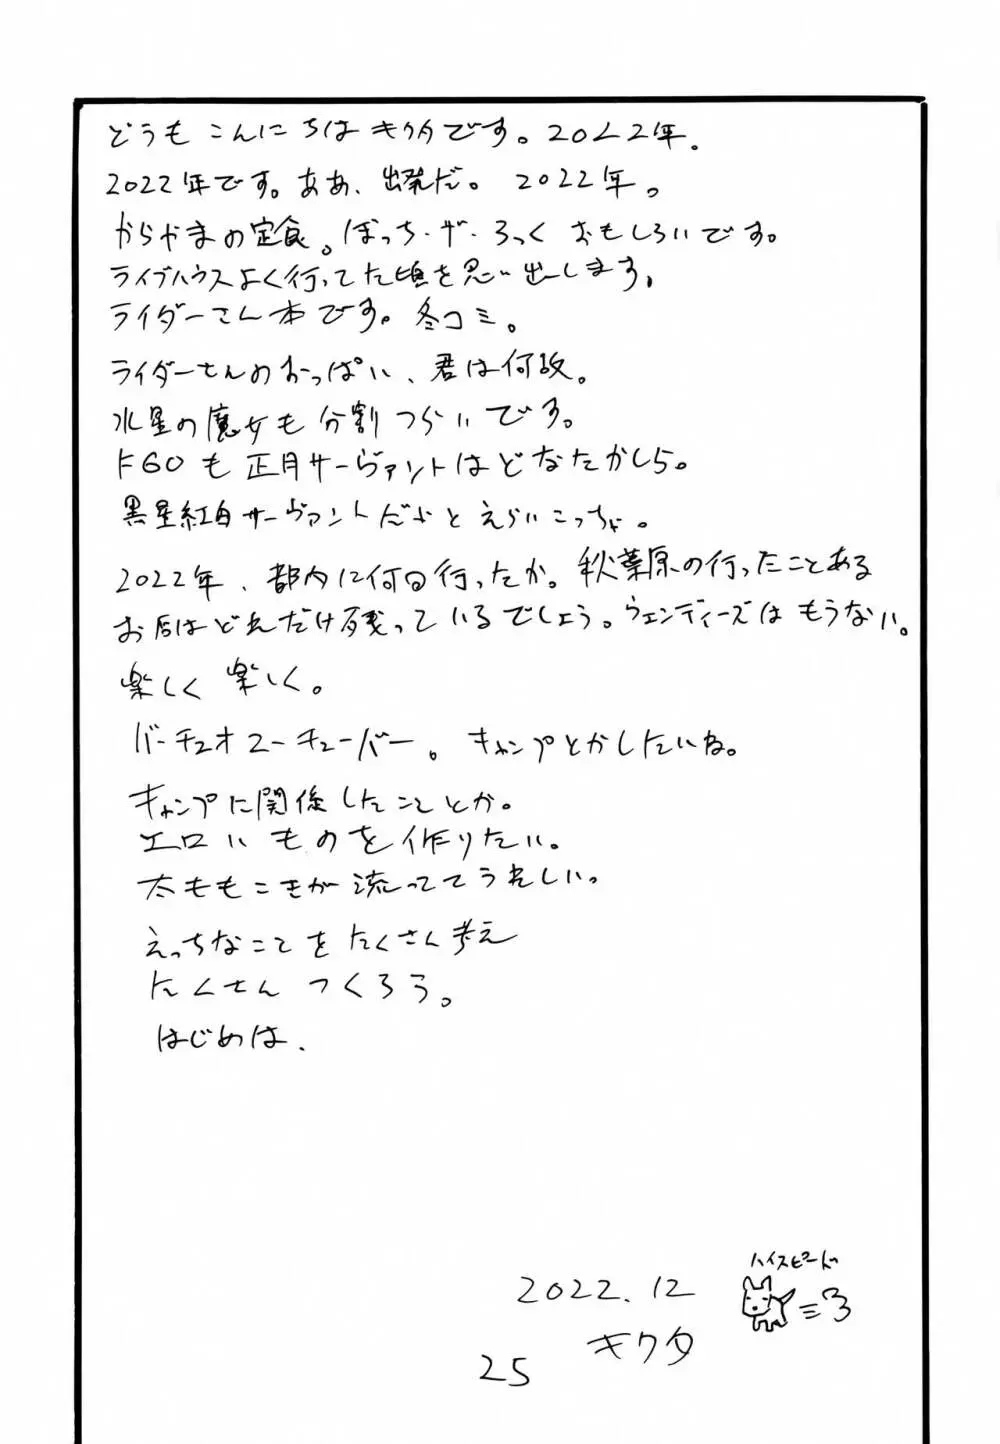 どうも こんにちは キクタです。2022年.
2022年です。ああ、出発だ。2022年。
からやまの定食。ぼっち・ザ・ろっく おもしろいです。
ライブハウスよく行ってた頃を思い出します。
ライダーさん本です。冬コミ。
ライダーさんのおっぱい、君は何故。
水星の魔女も分割つらいです。
FGOも正月サーヴァントはどなたかしら。
黒星紅白サーヴァントだよとえらいこっちゃ。
2022年、都内に何回行ったか。秋葉原の行ったことある
お店はどれだけ残っているでしょう。ウェンディーズはもうない。
楽しく 楽しく。
バーチュオユーチューバー。キャンプとかしたいね。
キャンプに関係したことか。
エロいものを作りたい。
太ももこきが流っててうれしい。
えっちなことをたくさん考え
たくさん つくろう。
はじめは、
ハイスピード
2022.12
キクタ
25